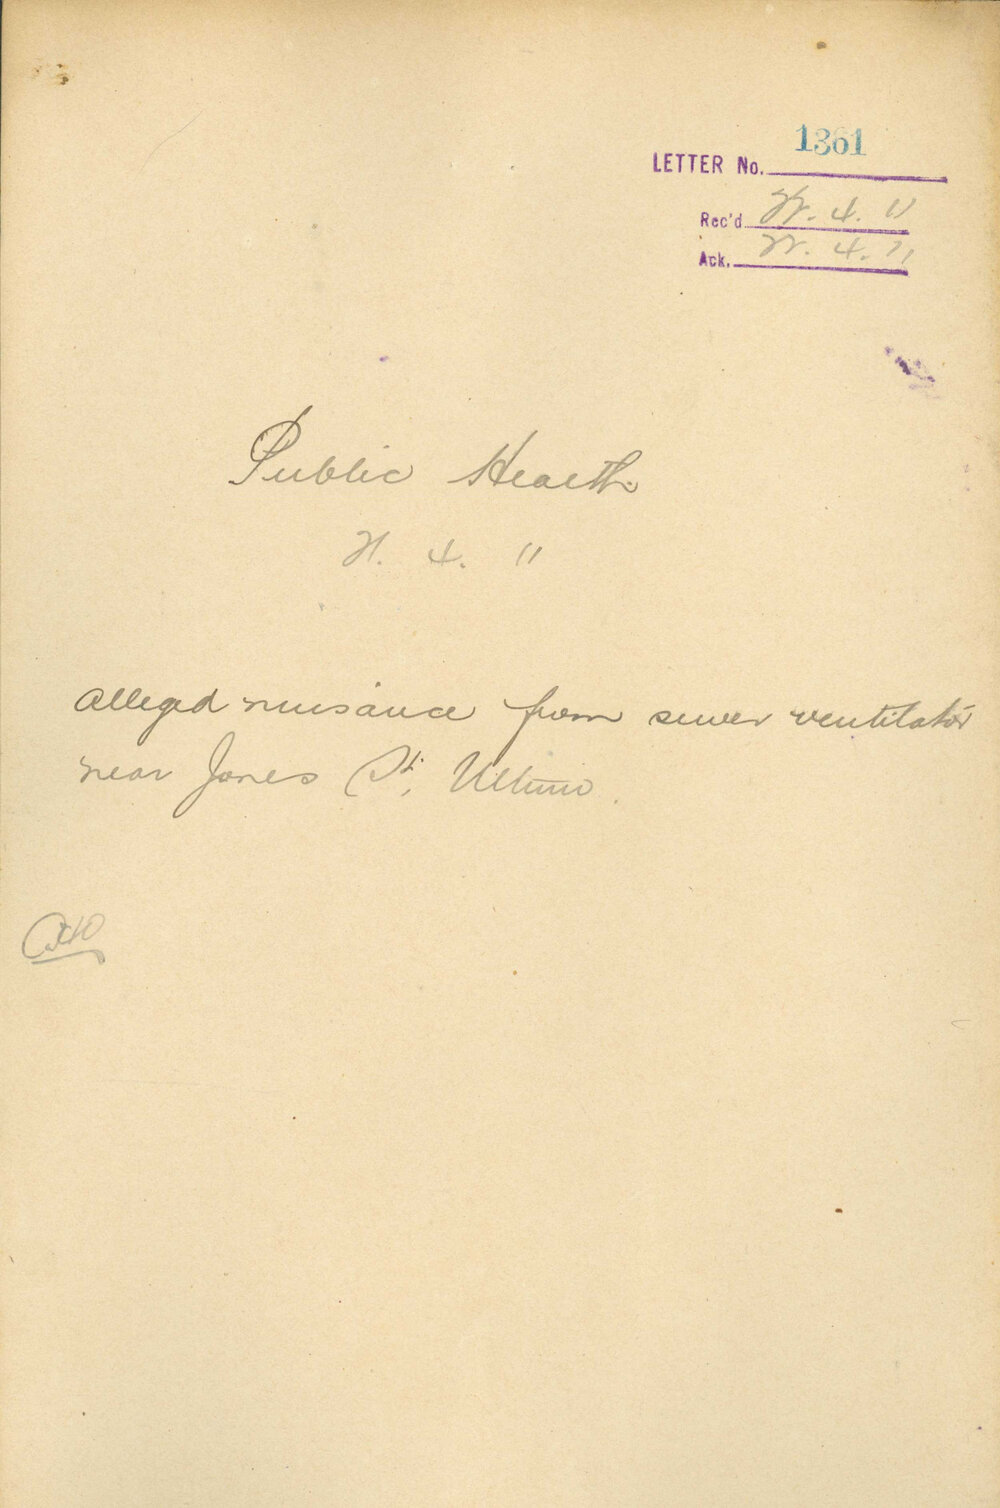 1361
LETTER No.
Rec'd 4. 11
Ack. 4. 11
Public Health
4. 11
alleged nuisance from sewer ventilator
near Jones St, Ultimo